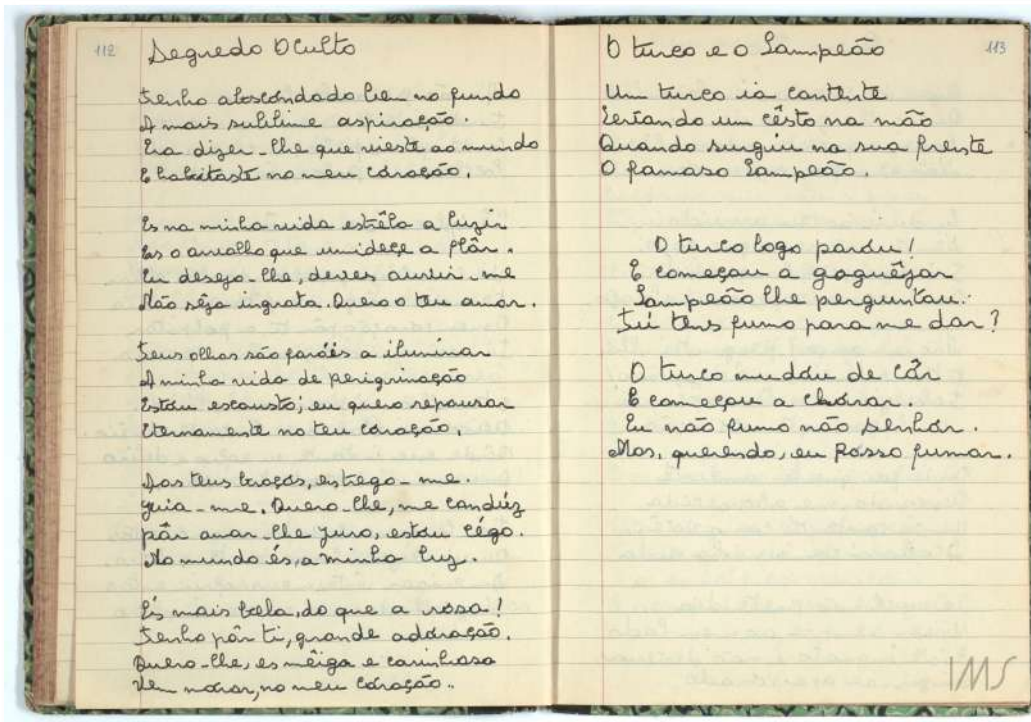 112
Segredo Oculto
Tenho aboscondado bem no fundo
A mais sublime aspiração.
Era dizer-lhe que vieste ao mundo
E habitaste no meu coração.
Es na minha vida estrêla a luzir
Es o orvalho que umideçe a flôr.
Eu desejo-lhe, deves ouvir-me
Não sêja ingrata. Quero o teu amor.
Teus olhos são faróis a iluminar
A minha vida de perigrinação
Estou escausto; eu quero repousar
Eternamente no teu coração.
Aos teus braços, entrego-me.
guia-me. Quero-lhe, me condúz
pôr amar-lhe juro, estou cégo.
No mundo és, a minha luz.
És mais bela, do que a rosa!
Tenho pôr ti, grande adoração.
Quero-lhe, es mêiga e carinhosa
Vem morar, no meu coração..
O turco e o Lampeão
113
Um turco ia contente
Levando um cêsto na mão
Quando surgiu na sua frente
O famoso Lampeão.
O turco logo parou!
E começou a goguêjar
Lampeão lhe perguntou:
Tú tens fumo para me dar?
O turco muddou de côr
E começou a chorar.
Eu não fumo não senhor.
Mas, querendo, eu posso fumar.
IMS